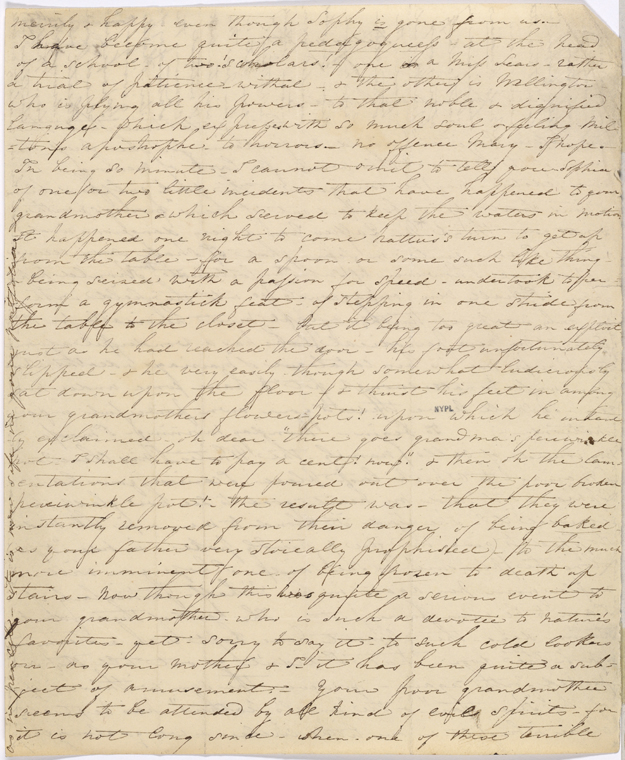 merrily & happy even though Sophy is gone from us.
I have become quite a pedagogueess - at the head
of a school - of two scholars! one is a Miss Sears - rather
a trial of patience withal - & the other is Wellington
who is plying all his powers - to that noble & dignified
language - Which, expresses with so much soul & feeling Mil
=ton's apostrophe to horrors - no offence Mary - I hope.
In being so minute - I cannot omit to tell you Sophia
of one or two little incidents that have happened to your
grandmother & which served to keep the waters in motion
It happened one night to come Nattie's turn to get up
from the table - for a spoon or some such like thing -
being seized with a passion for speed - undertook to per-
form a gymnastick feat - of stepping in one stride from
the table to the closet - But it being too great an exploit
just as he had reached the door - his foot unfortunately
slipped - & he very easily though somewhat ludicrously
sat down upon the floor - & thrust his feet in among
our grandmothers flowers pots! upon which he
ly exclaimed oh dear "there goes grandma's periwinkle
pot. I shall have to pay a cent! now"! & then oh the lam-
entations that were poured out over the poor broken
periwinkle pot! - the result was - that they were
instantly removed from their danger of being baked -
as your father very stoically prophisied - to the much
more imminent one of being frozen to death up
stairs - Now though this was quite a serious event to
your grandmother - who is such a devotee to nature's
favorites - yet - sorry to say it - to such cold lookers
on - as your mother & S. it has been quite a sub-
ject of amusement - Your poor grandmother
seems to be attended by all kind of evil spirits - for
it is not long since - when one of these terrible
NYPL